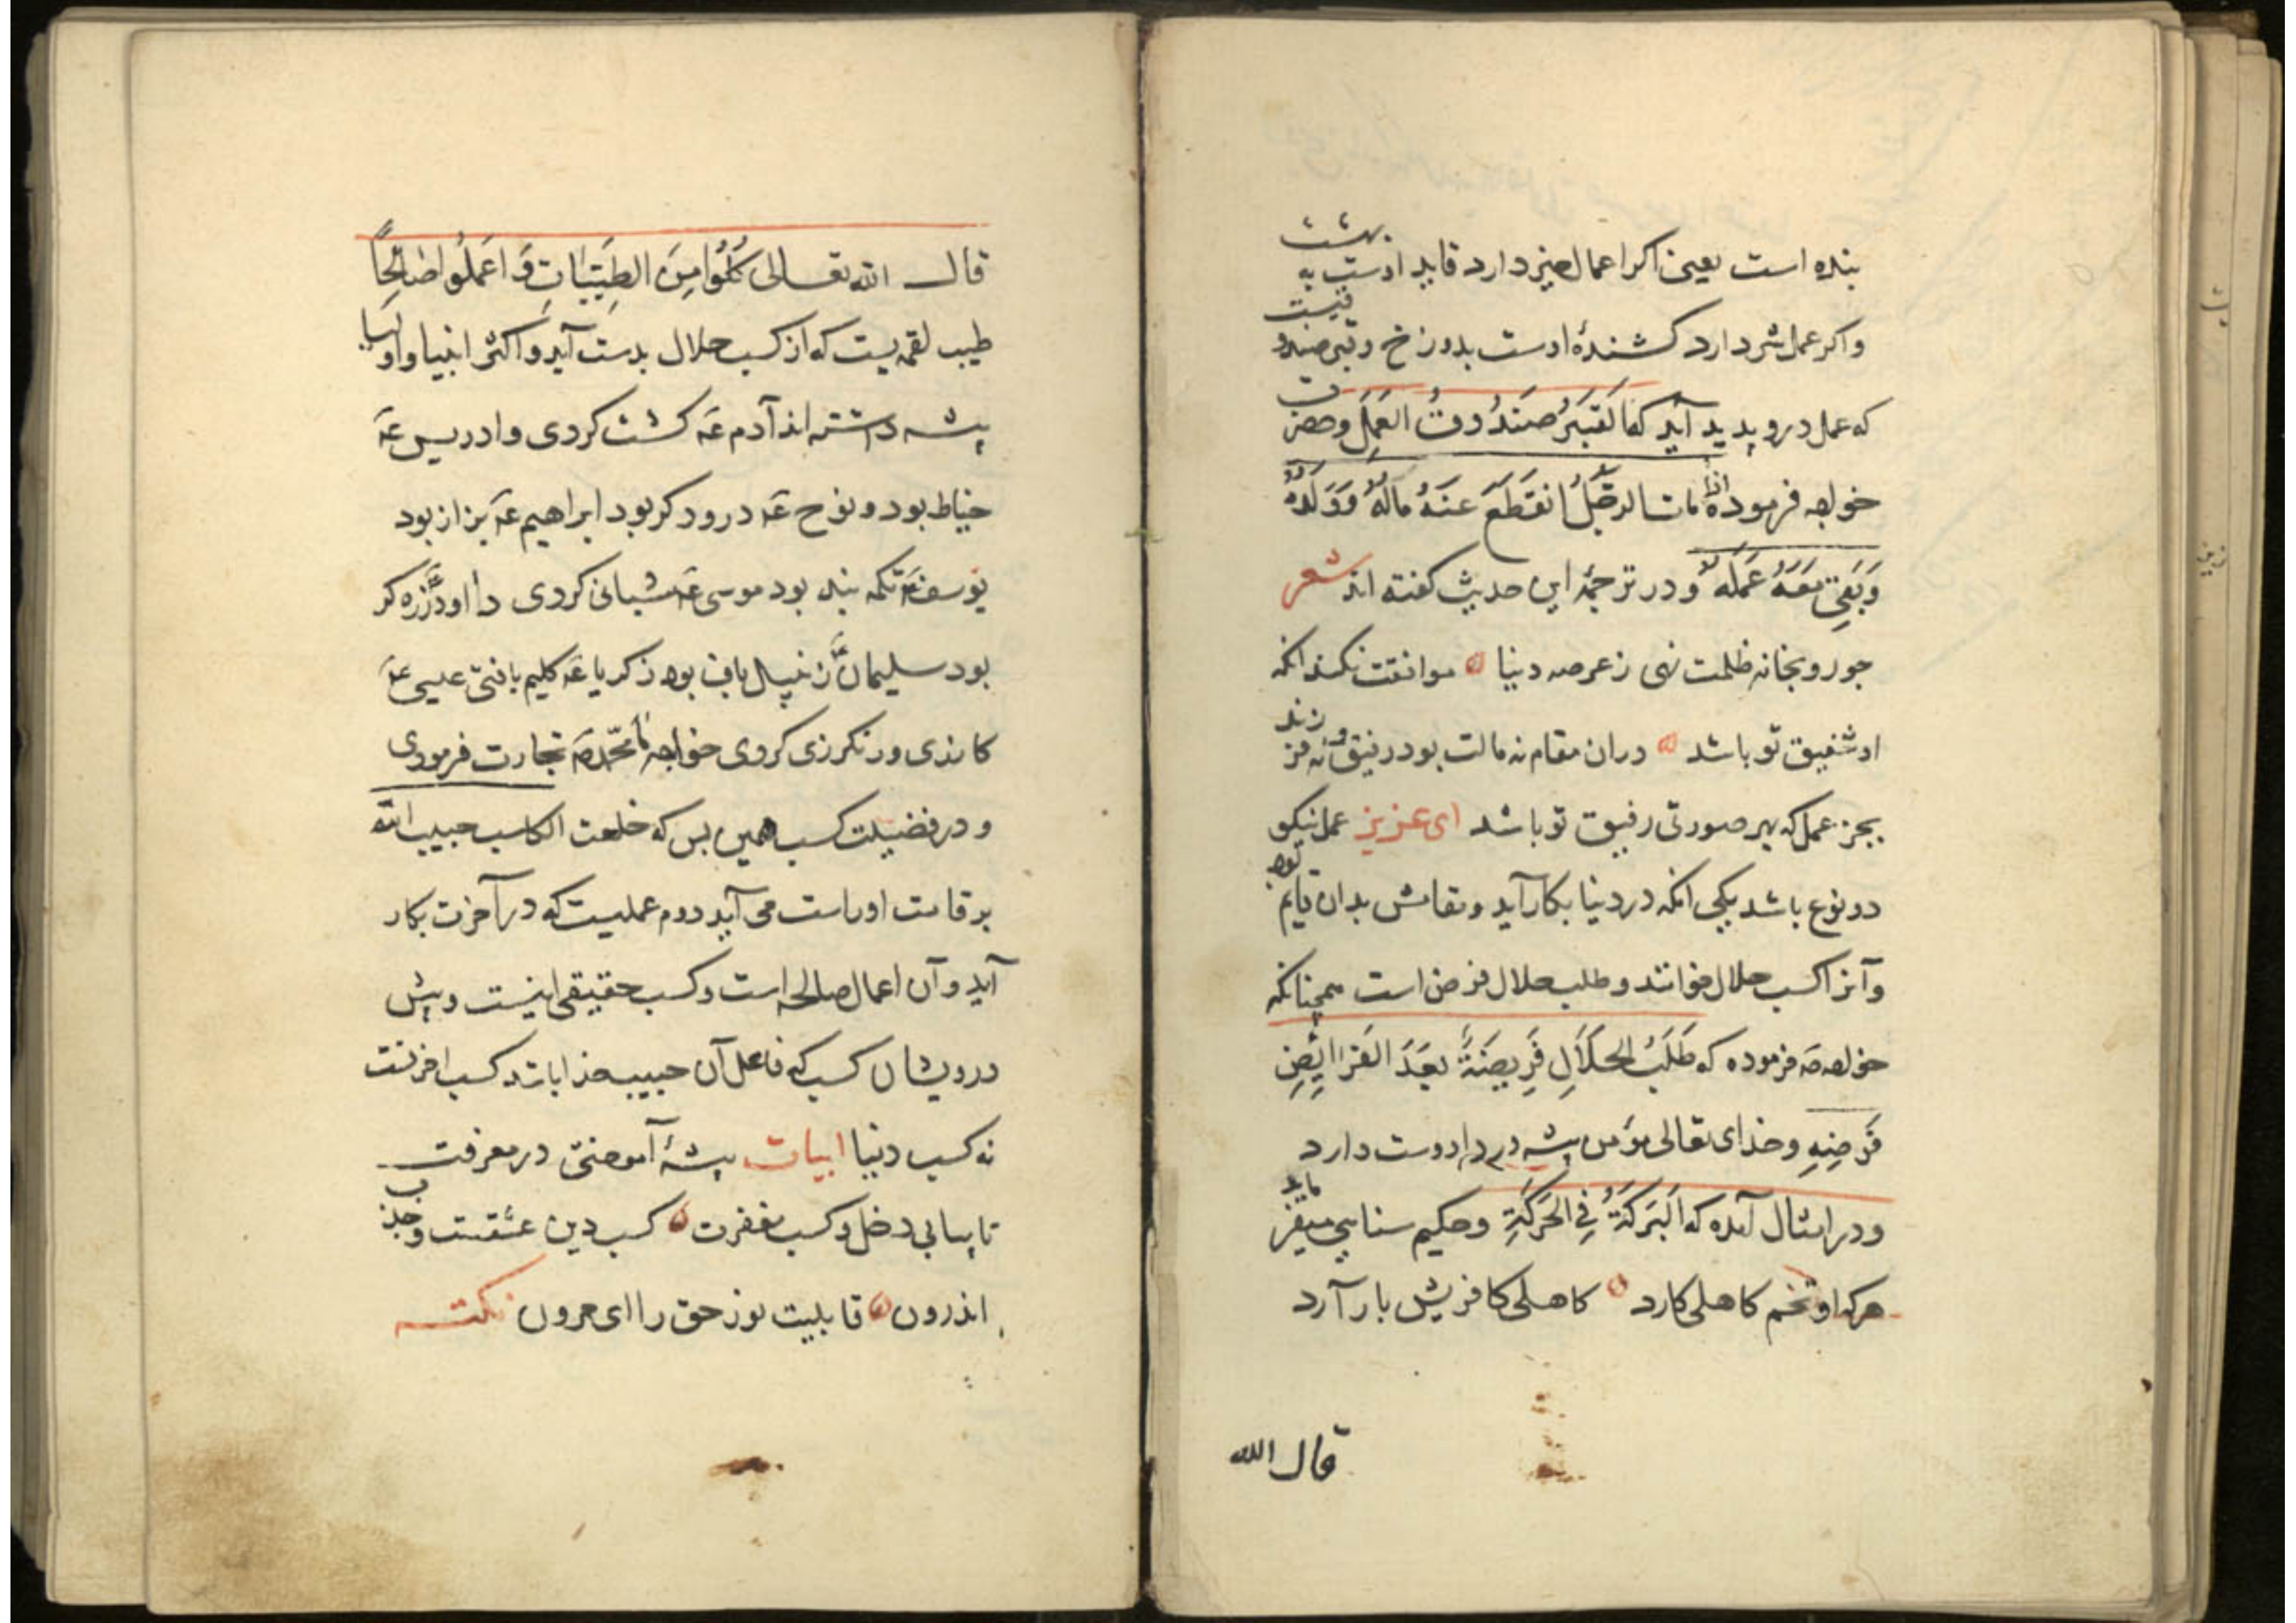 بنده است یعنی اکر اعمال خیر دارد قاید اوست به بهشت
واکر عمل شر دارد کشندهٔ اوست بدوزخ وقبر صندوقیست
که عمل درو پدید آید کما القَبَرُ صَندُوقُ العَمَلِ وحضرت
خواجه فرموده اذا مات الرجُلُ انقَطَعَ عَنهُ مالَهُ وَوَلَدُهُ
وَبَقِیَ مَعَهُ عَمَلَهُ ودر ترجمهٔ این حدیث کفته اند شعر
جو رو بخانه ظلمت نهی ز عرصه دنیا موافقت نکند انکه
او شفیق تو باشد دران مقام نه مالت بود رفیق و نه فرزند
بجز عمل که بهر صورتی رفیق تو باشد ای عزیز عمل نیکو
دو نوع باشد یکی انکه در دنیا بکار آید وبقاش بدان قایم بود
وآنرا کسب حلال خوانند وطلب حلال فرض است همچنانکه
خواجه صه فرموده که طَلَبُ الحلَالِ فَرِیضَةً بَعدَ الفَرایِضِ
فرضِیهِ وخدای تعالی مؤمن پیشه ور را دوست دارد
ودر امثال آمده که اَلبَرَکَةُ فِی الحَرَکَةِ وحکیم سنایی میفرماید
هرکه او تخم کاهلی کارد کاهلی کافریش بار آرد
قال الله
قال الله تعالی کُلُوُا مِنَ الطَیِّبَاتِ وَاعمَلُوا صالِحاً
طیب لقمه یست که از کسب حلال بدست آید واکثر انبیا واولیا
پیشه داشته اند آدم عَه کشت کردی وادریس عَه
خیاط بود ونوح عَه درود کر بود ابراهیم عَه بزاز بود
یوسف عَه تکمه بند بود موسی عَه شبانی کردی داود عَه زره کر
بود سلیمان عَه زنبیل باف بود زکریا عَه کلیم بافتی عیسی عَه
کازری ورنکرزی کردی خواجه ما محمّد صَه تجارت فرمودی
ودر فضیلت کسب همین بس که خلعت الکاسب حبیب الله
بر قامت او راست می آید دوم عملیست که در آخرت بکار
آید وآن اعمال صالحه است وکسب حقیقی اینست وپیش
درویشان کسب که فاعل آن حبیب خدا باشد کسب اخرتست
نه کسب دنیا ابیات پیشهٔ آموختی در معرفت
تا بیابی دخل وکسب مغفرت کسب دین عشقست وجذب
اندرون قابلیت نور حق را ای حرون نکته